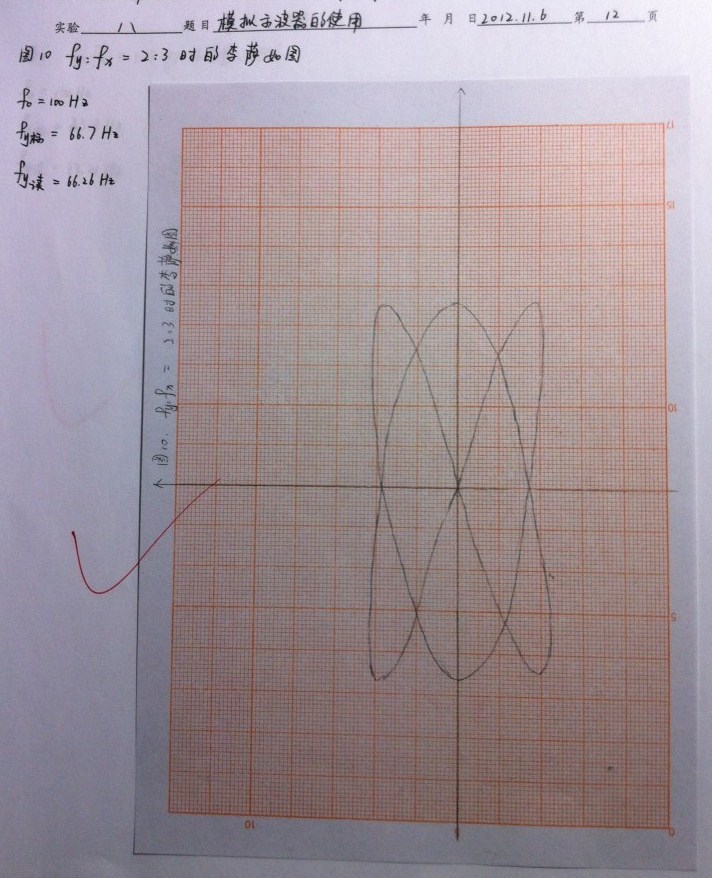 实验 11 题目 模拟示波器的使用 年 月 日 2012.11.6 第 12 页
图10 fy:fx = 2:3 时的李萨如图
f₀ = 100 Hz
fy标 = 66.7 Hz
fy读 = 66.26 Hz
图10. fy:fx = 2:3 时的李萨如图
17
15
10
5
0
10